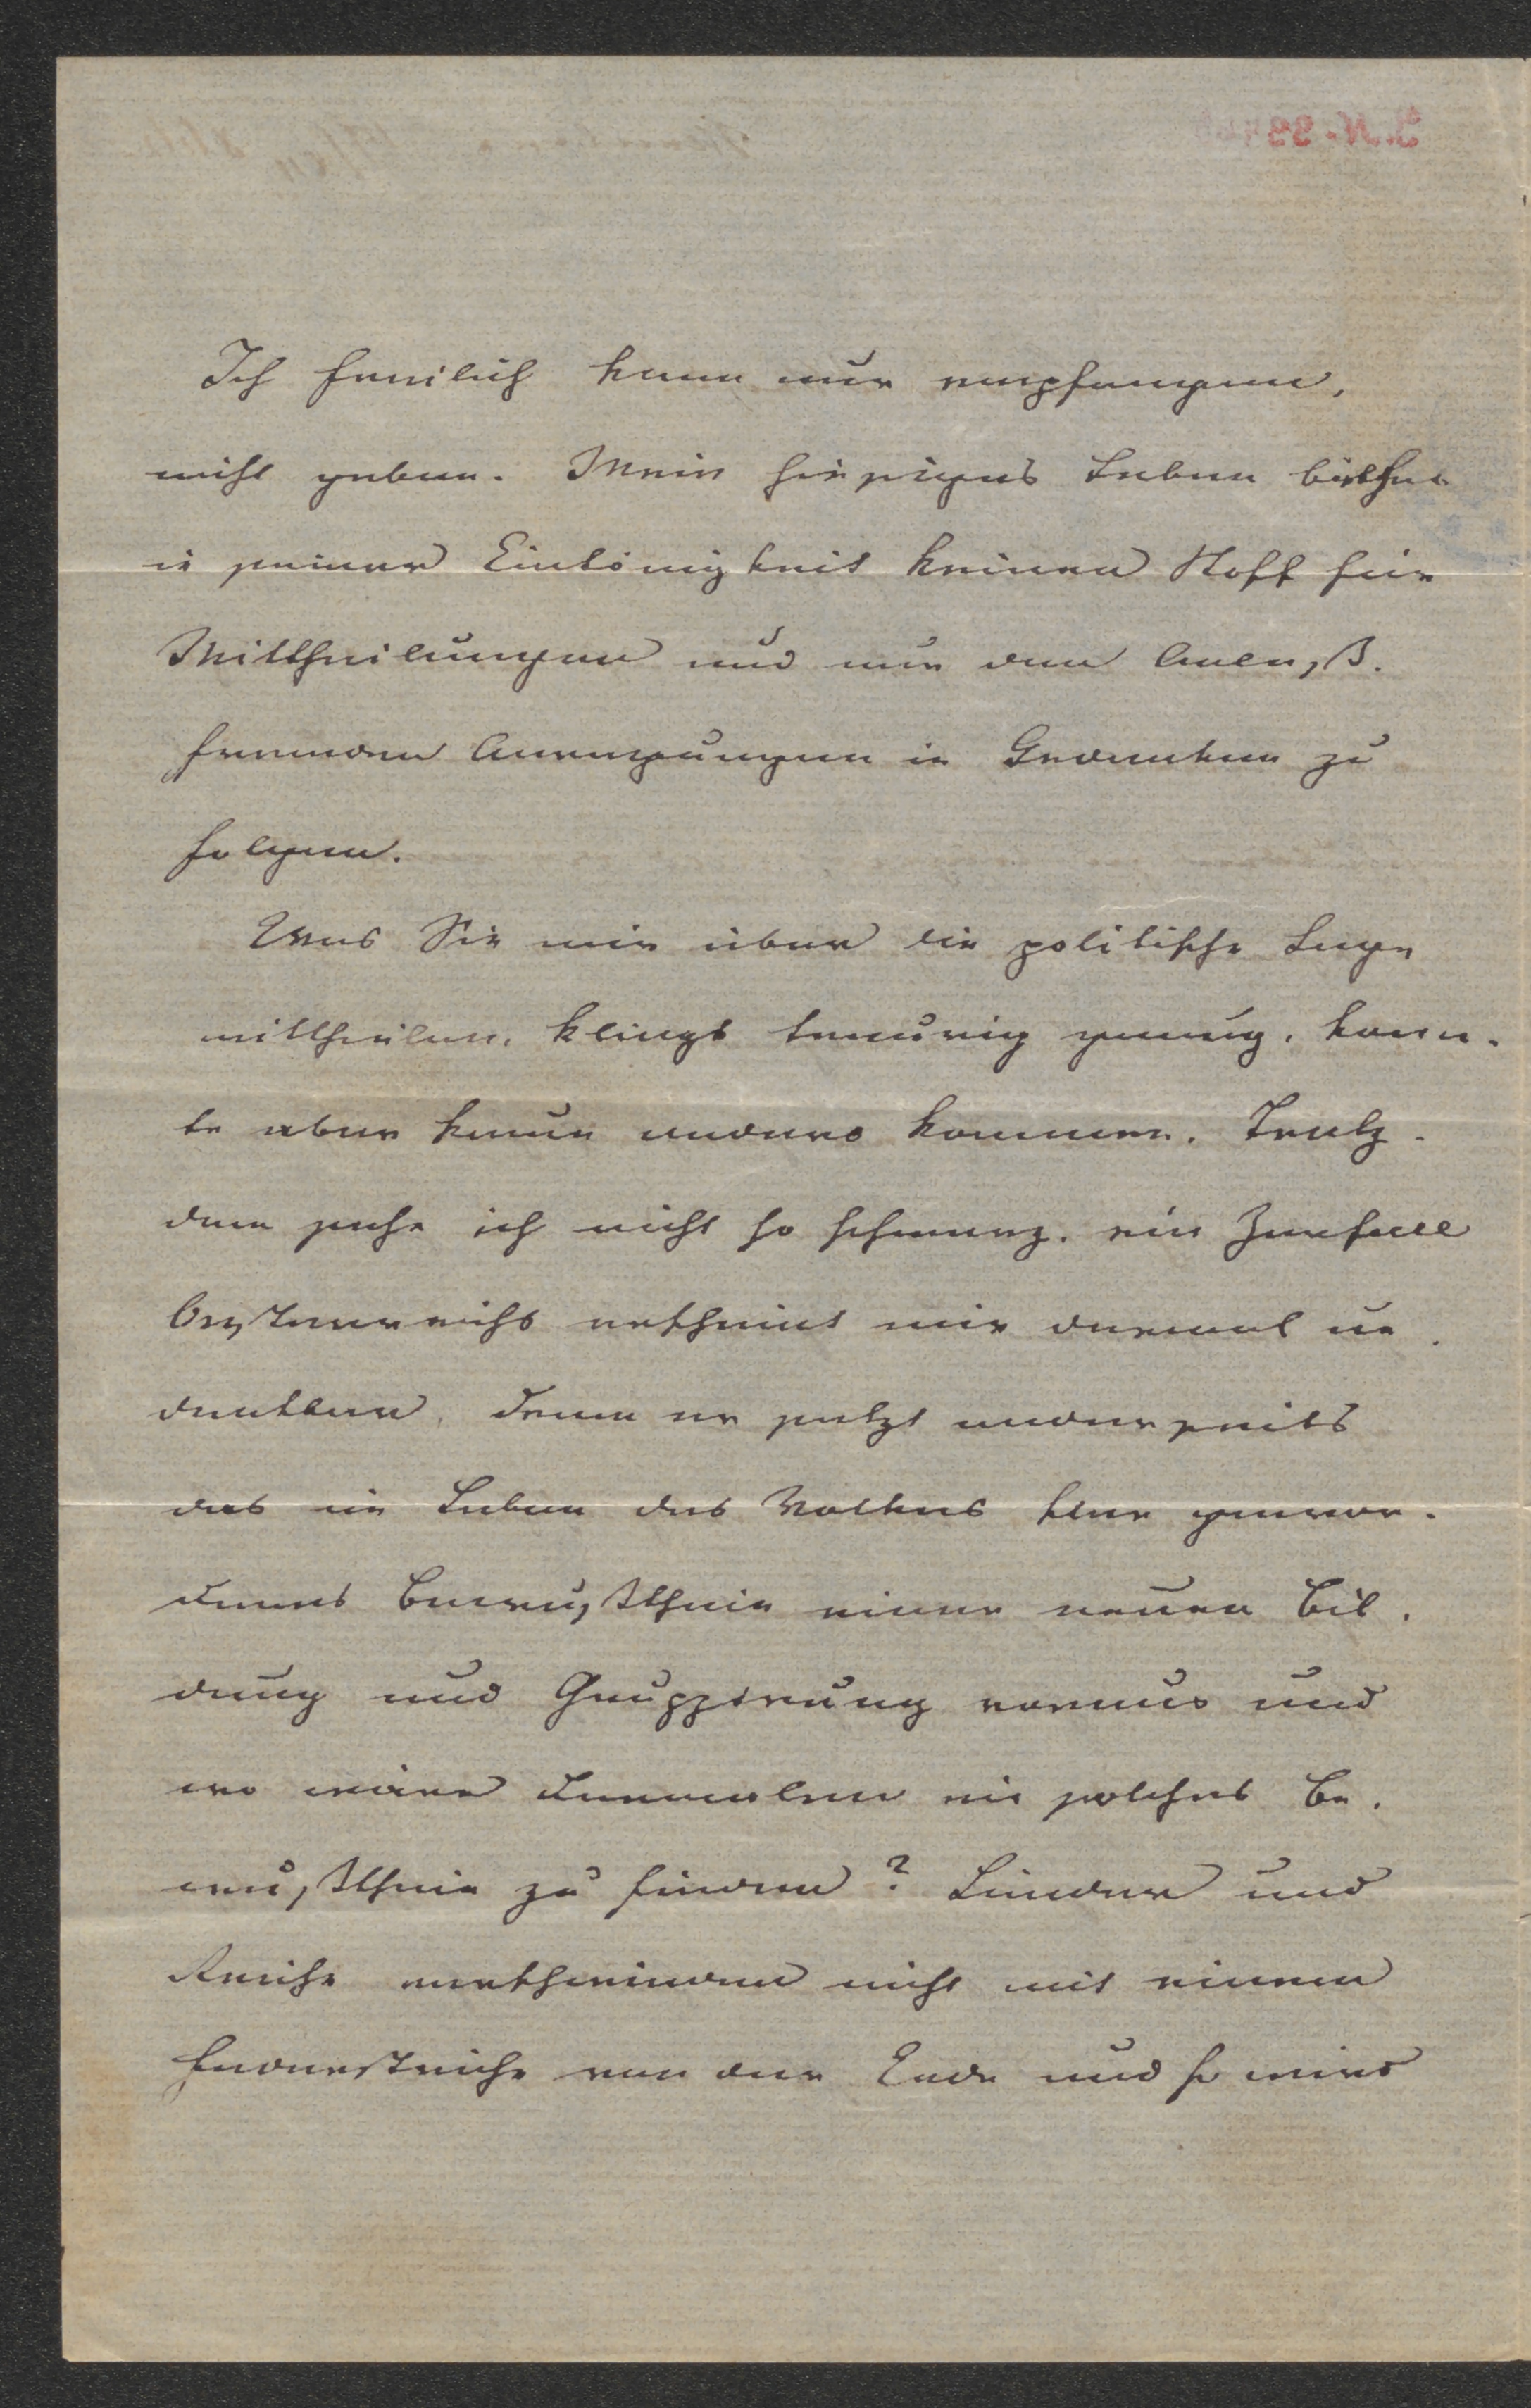 Ich freilich kann nur empfangen,
nicht geben. Mein hiesiges Leben
in seiner Eintönigkeit keinen Stoff für
Mittheilungen und nur den Anlaß
fremden Anregungen in Gedanken zu
folgen.
Was Sie mir über die politische Lage
mittheilen, klingt traurig genug, konn-
te aber kaum anders kommen. Trotz-
dem sehe ich nicht so schwarz. ein Zerfall
Oesterreichs erscheint mir dermal un-
denkbar, denn er setzt anderseits
das im Leben des Volkes klar gewor-
denes Bewußtsein einer neuen Bil-
dung und Gruppirung voraus und
wo wäre dermalen ein solches Be-
wußtsein zu finden? Länder und
Reiche verschwinden nicht mit einem
Federstriche von der Erde und so wird